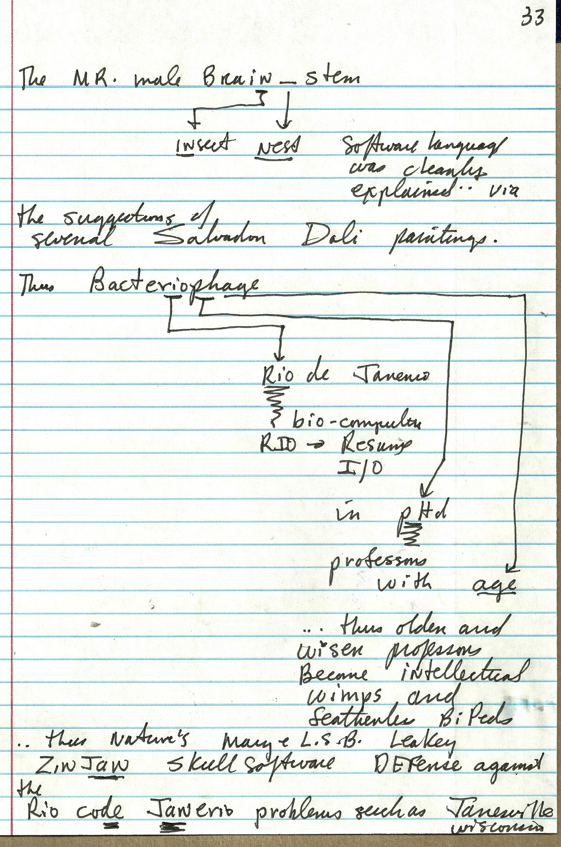 33
The MR. male Brain_stem
insect nest Software language
was cleanly
explained.. via
the suggestions of
several Salvador Dali paintings.
Thus Bacteriophage
Rio de Janeiro
bio-computer
RIO → Resume
I/O
in pHd
professors
with age
... thus older and
wiser professors
Become intellectual
wimps and
featherless BiPeds
.. thus Nature's Mary L.S.B. Leakey
ZinJaw Skull Software DEFense against
the
Rio code Jawerio problems such as Janesville
wisconsin